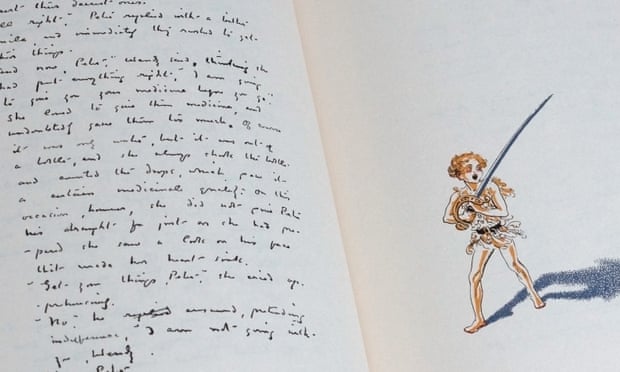 their dearest ones.
right," Peter replied with a bitter
smile and immediately they rushed to get
their things.
"And now, Peter," Wendy said, thinking she
had put everything right, "I am going
to give you your medicine before you go."
She loved to give them medicine, and
undoubtedly gave them too much. Of course
it was only water, but it was out of
a bottle, and she always shook the bottle
and counted the drops, which gave it
a certain medicinal quality. On this
occasion, however, she did not give Peter
his draught, for just as she had pre-
-pared she saw a look on his face
that made her heart sink.
"Get your things, Peter," she cried
"No," he answered, pretending
indifference, "I am not going with
you, Wendy.